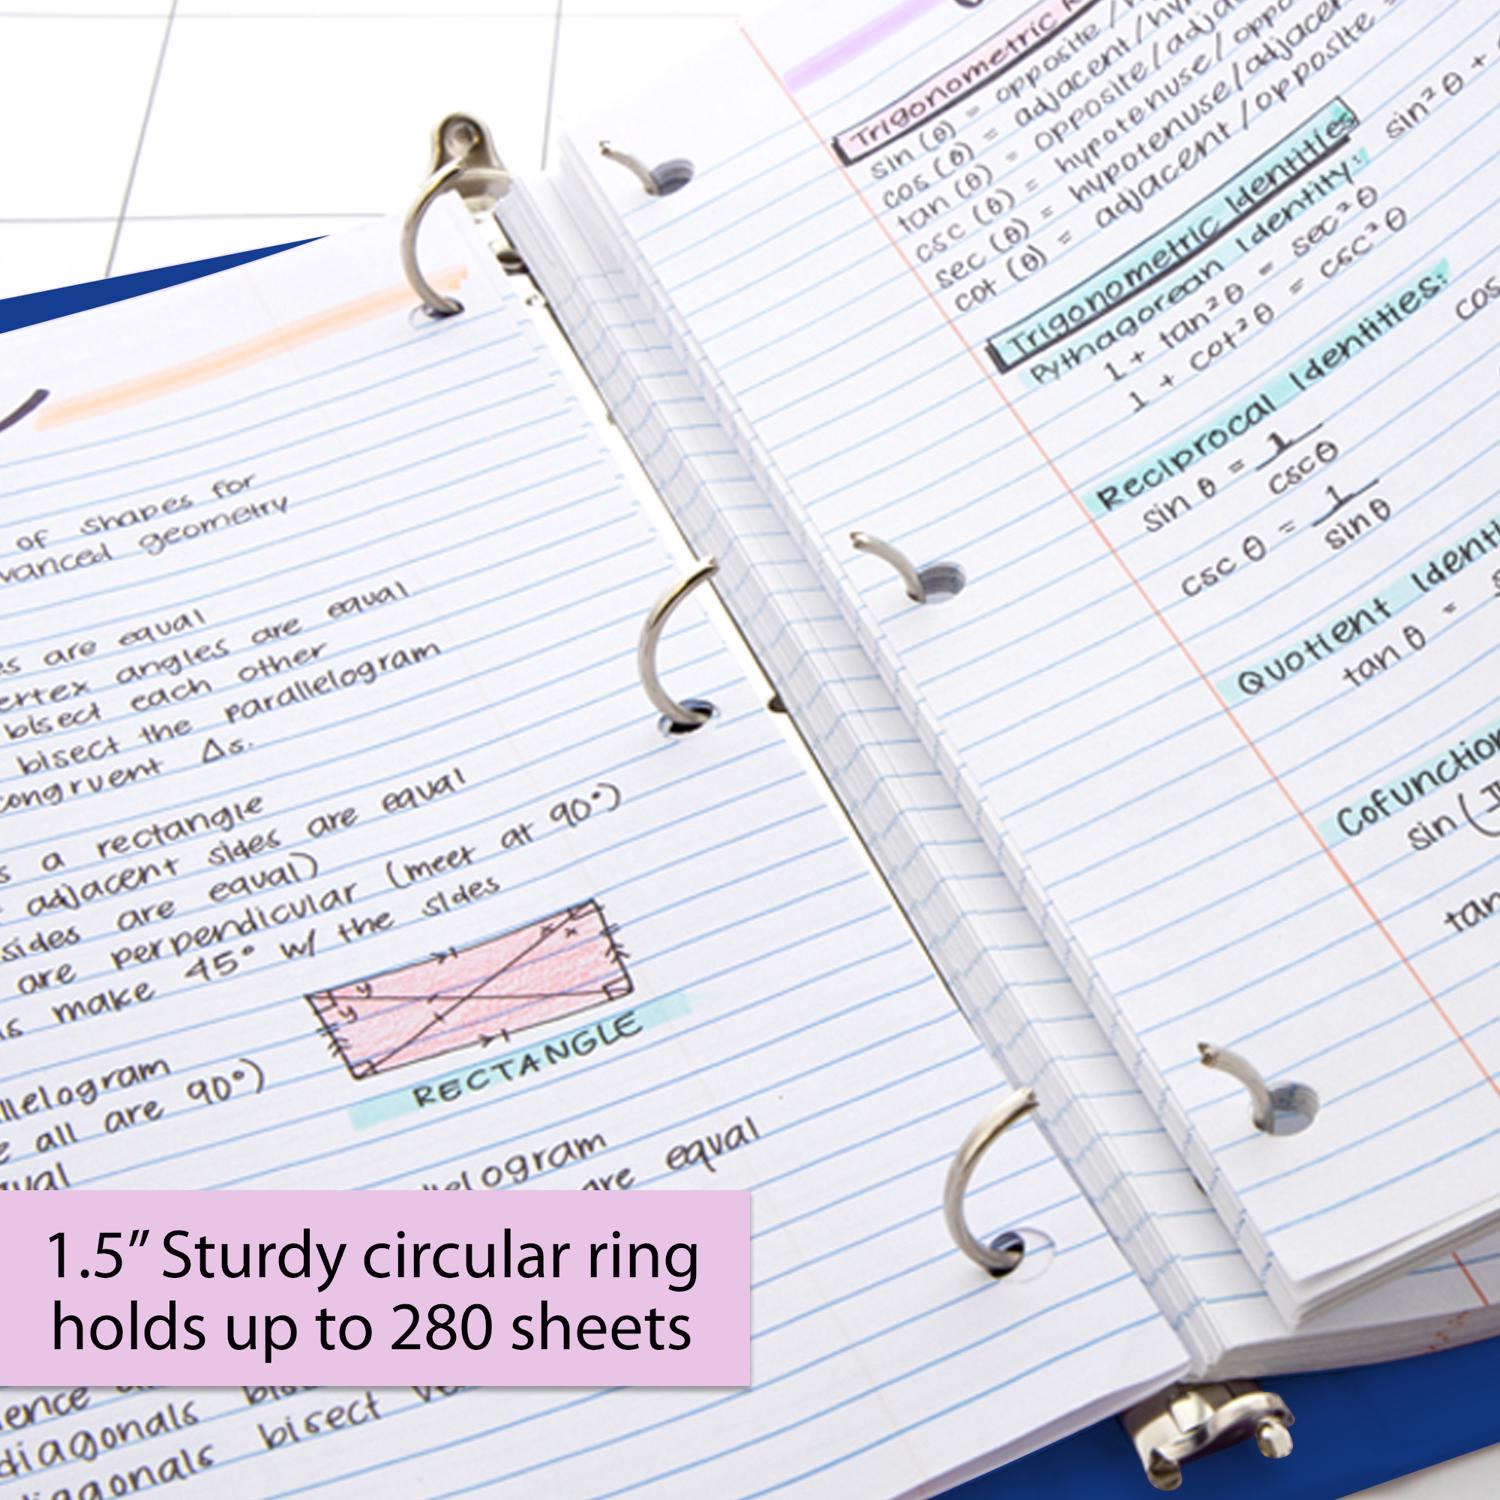 of shapes for
vanced geometry
es are equal
ertex angles are equal
bisect each other
bisect the parallelogram
congruent Δs.
s a rectangle
adjacent sides are equal
sides are equal)
are perpendicular (meet at 90°)
s make 45° w/ the sides
y
y
x
x
RECTANGLE
llelogram
e all are 90°)
ual
llelogram
are equal
1.5” Sturdy circular ring
holds up to 280 sheets
ience
diagonals
diagonals bisect
Trigonometric
sin (θ) = opposite /
cos (θ) = adjacent/hy
tan (θ) = opposite/adja
csc (θ) = hypotenuse/oppo
sec (θ) = hypotenuse/adjacen
cot (θ) = adjacent/opposite =
Trigonometric Identities
Pythagorean Identity: sin²θ +
1 + tan²θ = sec²θ
1 + cot²θ = csc²θ
Reciprocal Identities: cos
sin θ = 1/cscθ
csc θ = 1/sinθ
Quotient Identi
tan θ =
Cofunction
sin (
tan